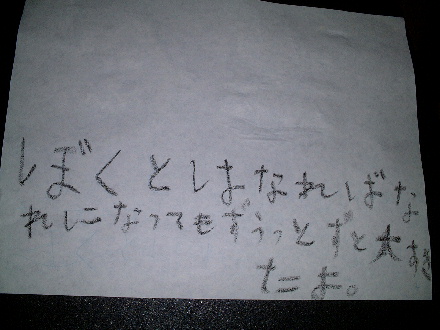 ぼくとはなればな
れになってもずうっとずと大すき
たよ。